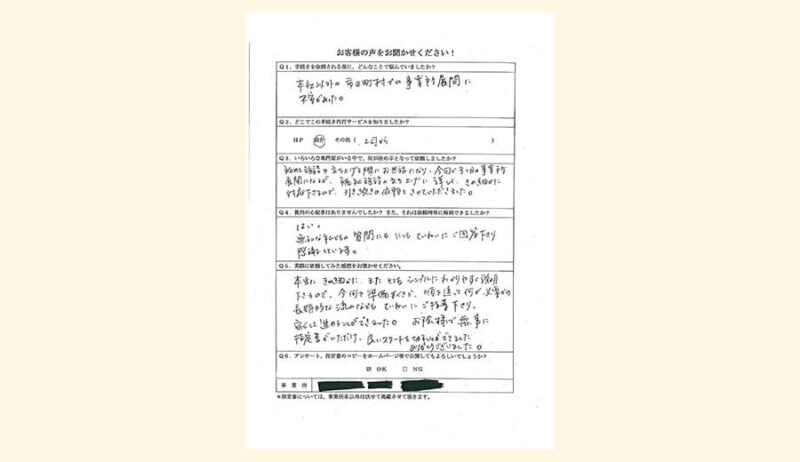 お客様の声をお聞かせください！
Q1．手続きを依頼される前に、どんなことで悩んでいましたか？
本社以外の市区町村での事業所展開に
不安があった。
Q2．どこでこの手続き代行サービスを知りましたか？
HP 紹介 その他（ 上司から ）
Q3．いろいろな専門家がいる中で、何が決め手となって依頼しましたか？
施設を立ち上げる際にお世話になり、今回が3つ目の事業所
展開になるが、福祉施設の立ち上げに詳しく、きめ細かに
対応下さるので、引き続き依頼をさせていただきました。
Q4．費用の心配事はありませんでしたか？また、それは依頼時等に解消できましたか？
はい。
無知な私どもの質問にもいつもていねいにご回答下さり
感謝しています。
Q5．実際に依頼してみた感想をお聞かせください。
本当にきめ細かに、また とてもシンプルにわかりやすく説明
下さるので、今何を準備すべきか、順を追って何が必要かの
長期的な流れなどもていねいにご指導下さり、
安心して進めることができました。 お陰様で無事に
指定書がいただけ、良いスタートを切ることができました
ありがとうございました。
Q6．アンケート、指定書のコピーをホームページ等で公開してもよろしいでしょうか？
☑ OK □ NG
事業所
＊指定書については、事業所名以外は伏せて掲載させて頂きます。